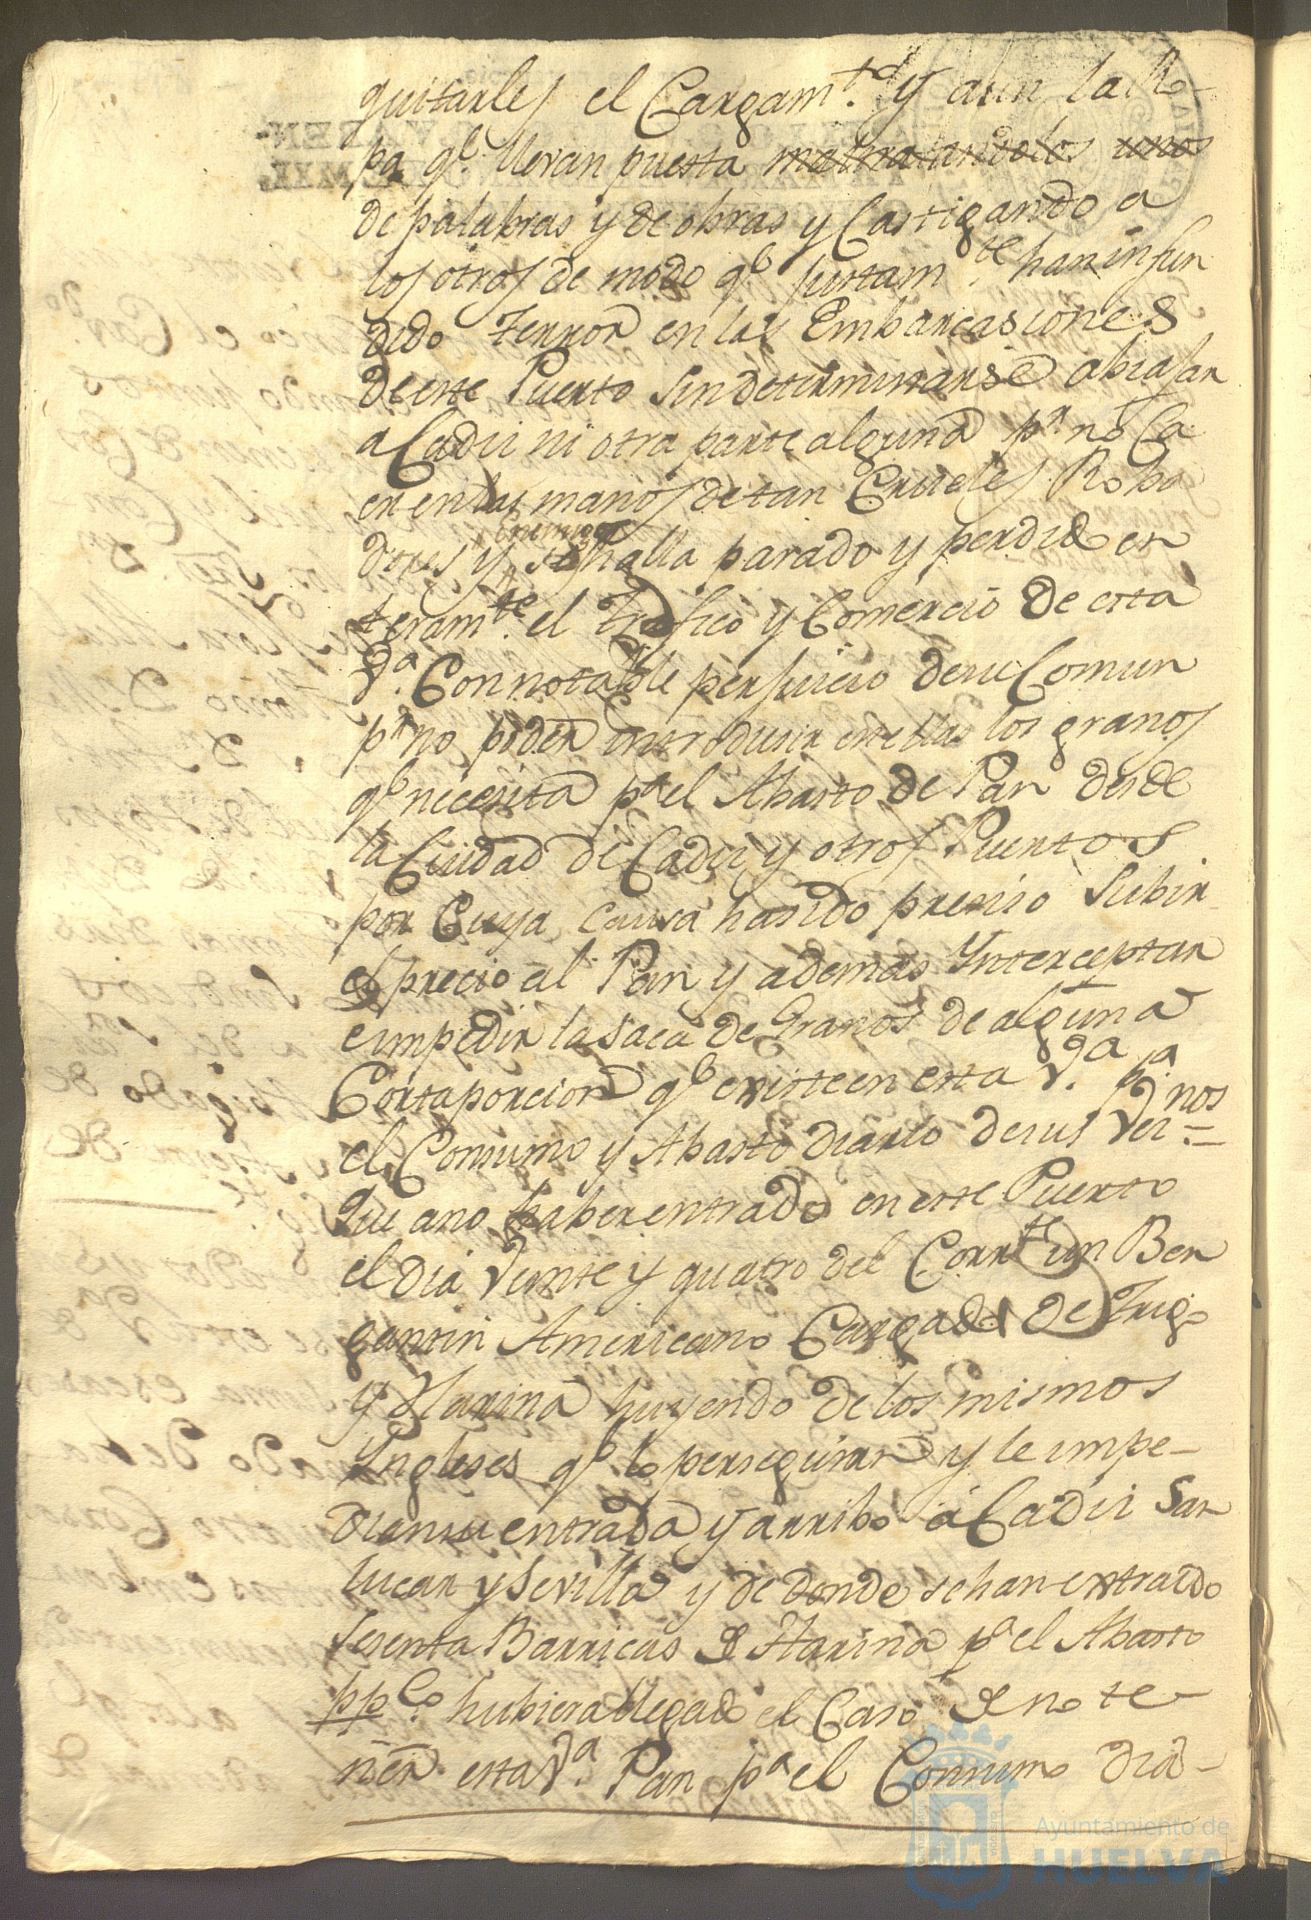 quitarles el Cargam.to y aun la Ro-
pa q.e llevan puesta maltratandolos unos
de palabras y de obras y Castigando a
los otros de modo q.e justam.te han infun
dido terror en las Embarcasiones
de este Puerto sin determinarse abiasar
a Cadiz ni otra parte alguna p.r no Ca
er en las manos de tan Crueles Roba
dores y Enemigos se halla parado y perdido en
teram.te el trafico y Comercio de esta
V.a Con notable perjuicio de su Comun
p.r no poder introducir en ellas los granos
q.e necesita p.a el Abasto de Pan desde
la Ciudad de Cadiz y otros Puertos
por Cuya causa ha sido presiso Subir
el precio al Pan y ademas Ynterceptar
e impedir la saca de Granos de alguna
Corta porcion q.e existe en esta V.a p.a
el Consumo y Abasto diario de sus Vez.nos =
Que a no haber entrado en este Puerto
el dia Veinte y quatro del Corr.te un Ber
gantin Americano Cargado de Trigo
y Harina huyendo de los mismos
Yngleses q.e lo perseguian y le impe-
dian su entrada y arribo á Cadiz San
lucar y Sevilla y de donde se han extraido
sesenta Barricas de Harina p.a el Abasto
pp.co hubiera llegado el Caso de no te-
ner esta V.a Pan p.a el Consumo dia-
Ayuntamiento de
HUELVA